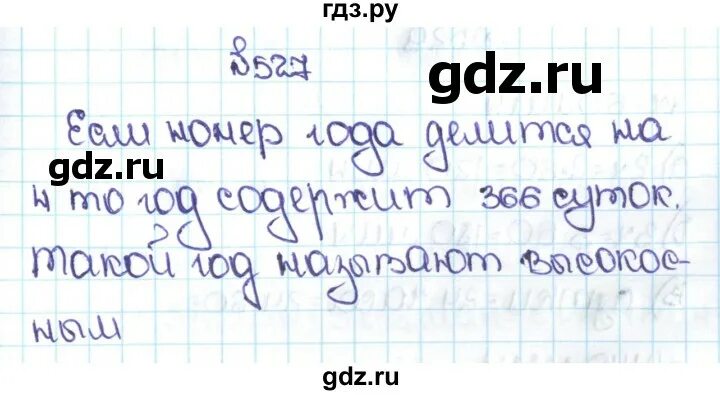 гдз.ру
№527
gdz.ru
Если номер года делится на
gdz.ru
4 то год содержит 366 суток.
такой год называют высокос-
gdz.ru
ным
gdz.ru